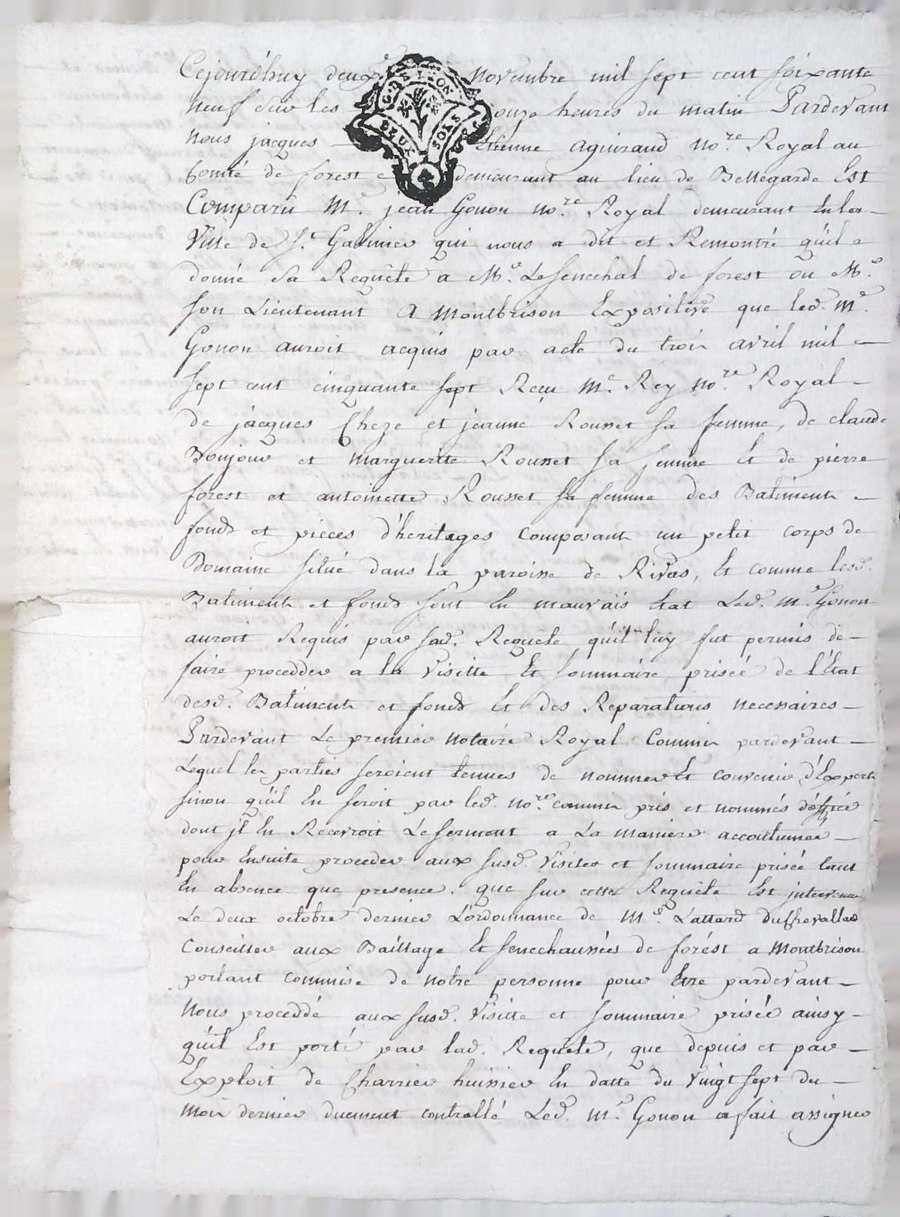 Cejourd'huy deuxe Novembre mil sept cent soixante
neuf sur les onze heures du matin Pardevant
nous jacques Etienne Aguiraud nore Royal au
Comté de forest demeurant au lieu de Bellegarde Est
Comparu Me jean Gonon nore Royal demeurant En la
Ville de St Galmier qui nous a dit et Remontré qu'il a
donné sa Requête a Mr Le Senechal de forest ou Mr
son Lieutenant A Montbrison Expositive que led. Me
Gonon auroit acquis par acte du trois avril mil
sept cent cinquante sept Reçu Me Rey nore Royal
de jacques Cheze et jeanne Rousset sa femme, de claude
Boujour et marguerite Rousset sa femme Et de pierre
forest et antoinette Rousset sa femme des Batiments
fonds et pieces d'heritages Composant un petit corps de
Domaine situé dans la paroisse de Rivas, Et comme lesd.
Batiments et fonds sont En mauvais Etat Led. Me Gonon
auroit Requis par sad. Requete qu'il luy fut permis de
faire procedder a la Visitte Et sommaire prisée de l'Etat
desd. Batiments et fonds Et des Reparations necessaires
Pardevant Le premier notaire Royal Commis pardevant
Lequel les parties seroient tenues de nommer Et convenir d'Experts
sinon qu'il En seroit par led. nore commis pris et nommés d'office
dont jl En Recevroit Le serment a La maniere accoutumée
pour Ensuite proceder aux susd. Visites et sommaire prisée tant
En absence que presence, que sur cette Requête Est intervenue
Le deux octobre dernier L'ordonnance de Mr Lattard Duchevallard
Conseiller aux Baillage Et Senechaussées de forést a Montbrison
portant commise de notre personne pour Etre pardevant
Nous proceddé aux susd. Visitte et sommaire prisée ainsy
qu'il Est porté par lad. Requête, que depuis et par
Exploit de Charrier huissier En datte du Vingt sept du
Mois dernier duement controllé Led. Me Gonon a fait assigner
G. DE LYON
DEUX SOLS